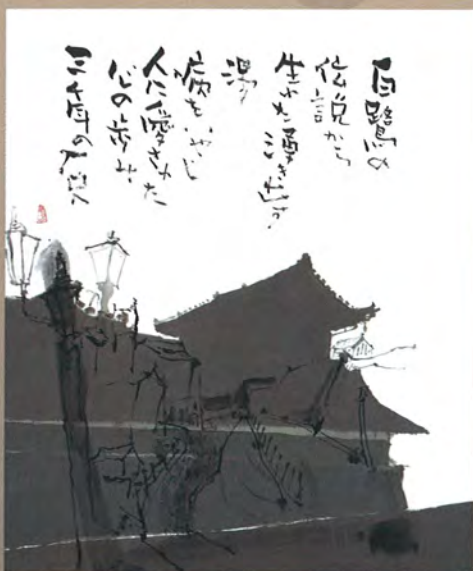 白鷺の
伝説から
生れた湧き出す
湯
病をいやし
人に愛された
心の歩み
三千年の歴史